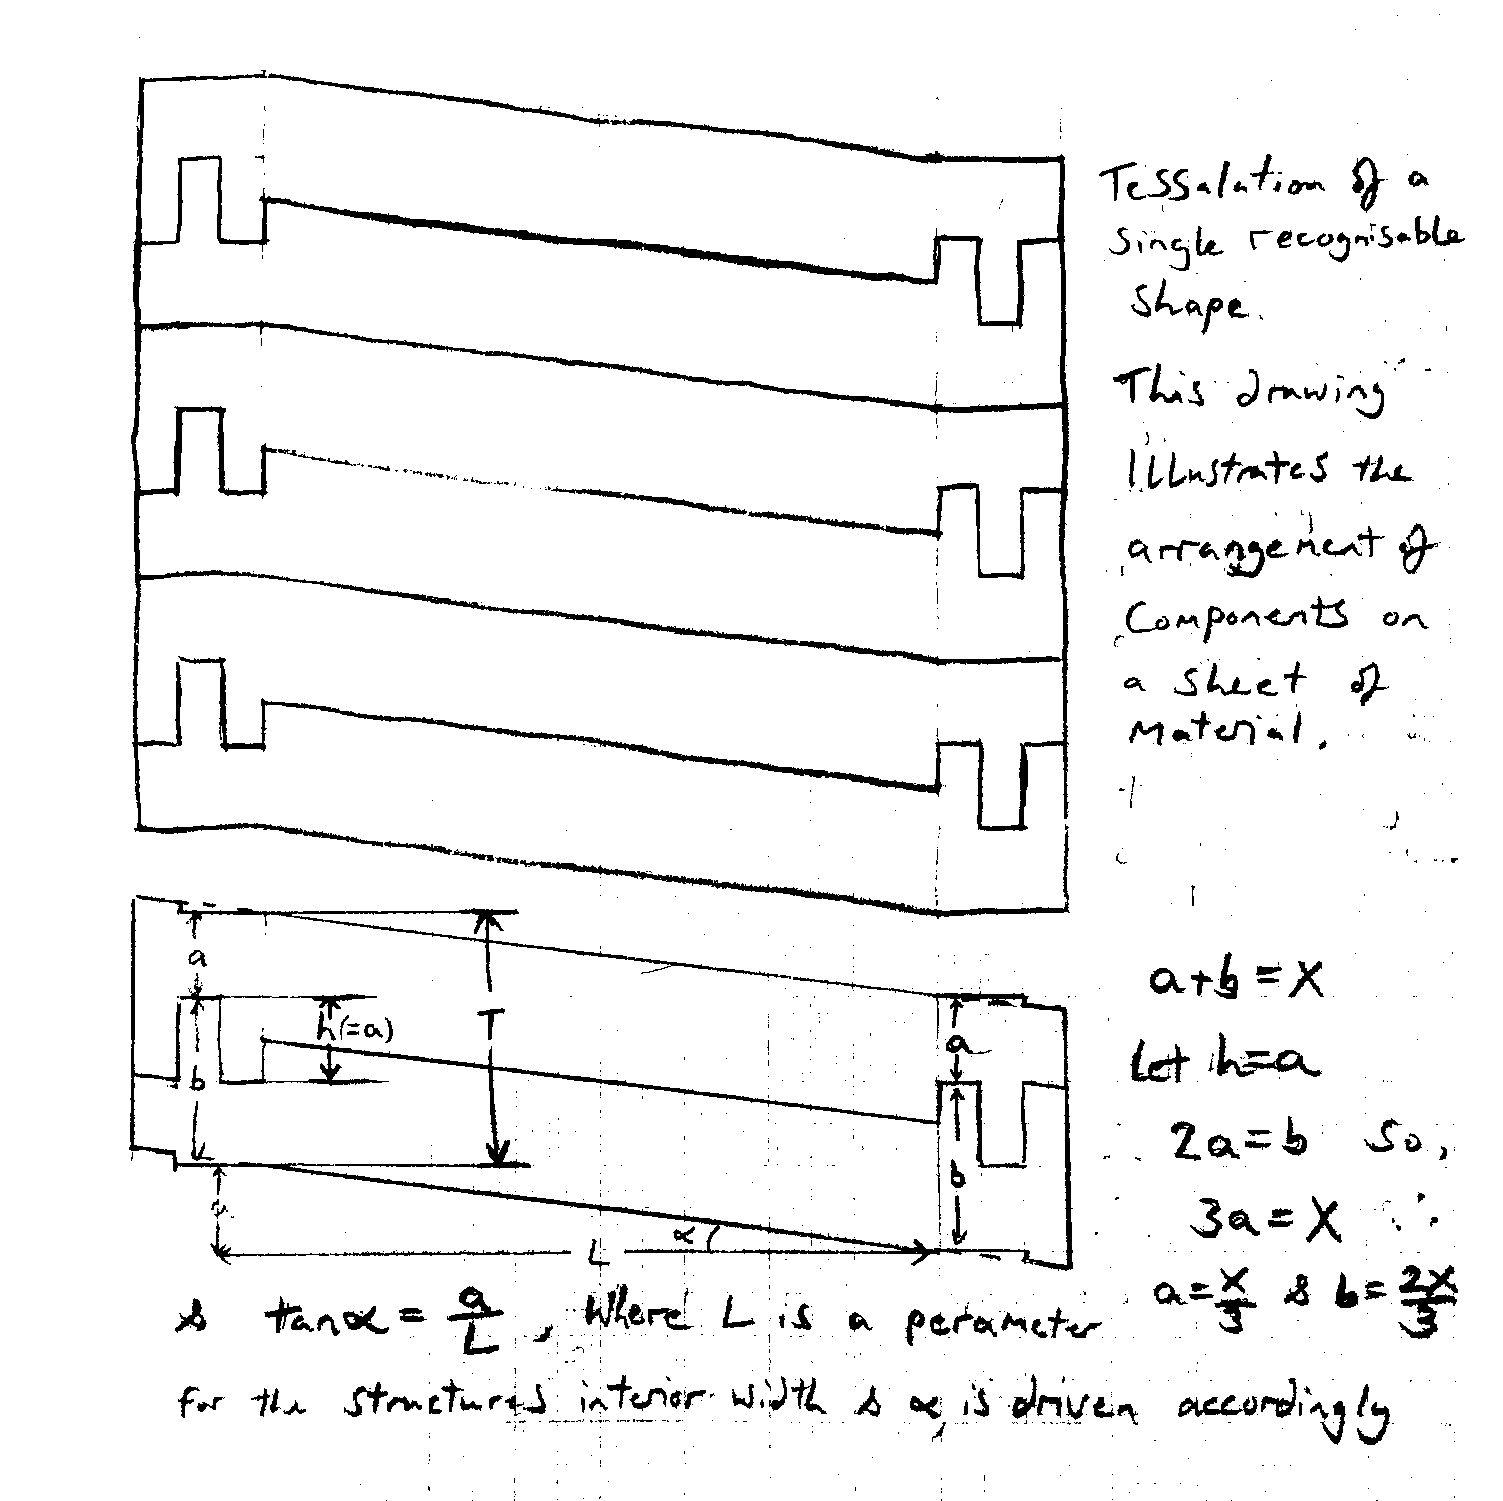 Tessalation of a
single recognisable
shape.
This drawing
illustrates the
arrangement of
components on
a sheet of
material.
a
h(=a)
b
T
a
b
a
L
α
a+b=X
Let h=a
2a=b so,
3a=X ∴
a=X/3 & b=2X/3
& tanα = a/L , where L is a perameter
for the structures interior width & α is driven accordingly